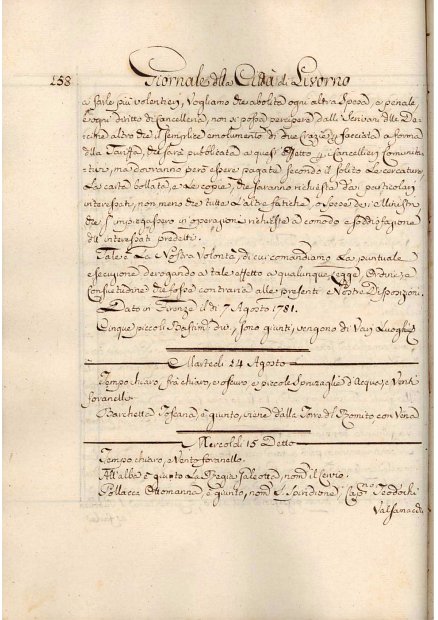 258
Giornale della Città di Livorno
a farle più volentieri, Vogliamo che abolita ogni altra Spesa, e penale,
e ogni diritto di Cancelleria, non si possa percipere dalli Scrivani delle De-
cime altro che il semplice emolumento di due Crazie p facciata a forma
della Tariffa, che sarà pubblicata a quest'effetto p i Cancellieri Comunita-
tivi, ma dovranno però essere pagate secondo il solito Le cercature,
La carta bollata, e Le copie, che saranno richieste da i particolari
interessati, non meno che tutte L'altre fatiche, o spese dei Ministri
che s'impiegassero in operazioni richieste a comodo e soddisfazione
dell' interessati predetti.
Tale è La Nostra Volontà, di cui comandiamo La puntuale
esecuzione derogando a tale effetto a qualunque Legge, Ordine, e
Consuetudine che fosse contraria alle presenti Nostre Disposizioni.
Dato in Firenze il dì 7 Agosto 1781.
Cinque piccoli Bastimti che, sono giunti, vengono di Varj Luoghi
Martedi 14 Agosto
Tempo chiaro, frà chiaro, e oscuro, e piccole Spruzaglie d'Acqua, e Vento
foranello
Barchetta Toscana, è giunta, viene dalla Torre di Romito con Vena
Mercoldi 15 Detto
Tempo chiaro, e Vento foranello.
All'alba è giunto La Regia galeotta, nom.
Pollacca Ottomanna, è giunto, nom. S. Spiridione, Cap.no Teodochi
Valsanachi